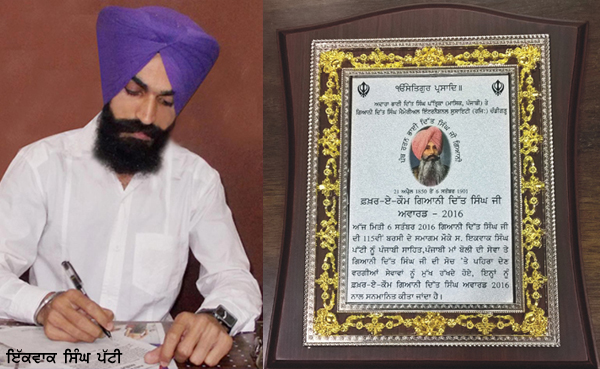 ੴਸਤਿਗੁਰ ਪ੍ਰਸਾਦਿ॥
ਅਦਾਰਾ ਭਾਈ ਦਿੱਤ ਸਿੰਘ ਪੱਤ੍ਰਿਕਾ (ਮਾਸਿਕ, ਪੰਜਾਬੀ) ਤੇ
ਗਿਆਨੀ ਦਿੱਤ ਸਿੰਘ ਮੈਮੋਰੀਅਲ ਇੰਟਰਨੈਸ਼ਨਲ ਸੁਸਾਇਟੀ (ਰਜਿ:) ਚੰਡੀਗੜ੍ਹ
ਪੰਥ ਰਤਨ ਭਾਈ ਦਿੱਤ ਸਿੰਘ ਜੀ ਗਿਆਨੀ
21 ਅਪ੍ਰੈਲ 1850 ਤੋਂ 6 ਸਤੰਬਰ 1901
ਫ਼ਖ਼ਰ-ਏ-ਕੌਮ ਗਿਆਨੀ ਦਿੱਤ ਸਿੰਘ ਜੀ
ਅਵਾਰਡ - 2016
ਅੱਜ ਮਿਤੀ 6 ਸਤੰਬਰ 2016 ਗਿਆਨੀ ਦਿੱਤ ਸਿੰਘ ਜੀ
ਦੀ 115ਵੀਂ ਬਰਸੀ ਦੇ ਸਮਾਗਮ ਮੌਕੇ ਸ. ਇਕਵਾਕ ਸਿੰਘ
ਪੱਟੀ ਨੂੰ ਪੰਜਾਬੀ ਸਾਹਿਤ,ਪੰਜਾਬੀ ਮਾਂ ਬੋਲੀ ਦੀ ਸੇਵਾ ਤੇ
ਗਿਆਨੀ ਦਿੱਤ ਸਿੰਘ ਜੀ ਦੀ ਸੋਚ 'ਤੇ ਪਹਿਰਾ ਦੇਣ
ਵਰਗੀਆਂ ਸੇਵਾਵਾਂ ਨੂੰ ਮੁੱਖ ਰੱਖਦੇ ਹੋਏ, ਇਨ੍ਹਾਂ ਨੂੰ
ਫ਼ਖ਼ਰ-ਏ-ਕੌਮ ਗਿਆਨੀ ਦਿੱਤ ਸਿੰਘ ਅਵਾਰਡ 2016
ਨਾਲ ਸਨਮਾਨਿਤ ਕੀਤਾ ਜਾਂਦਾ ਹੈ।
ਇੱਕਵਾਕ ਸਿੰਘ ਪੱਟੀ